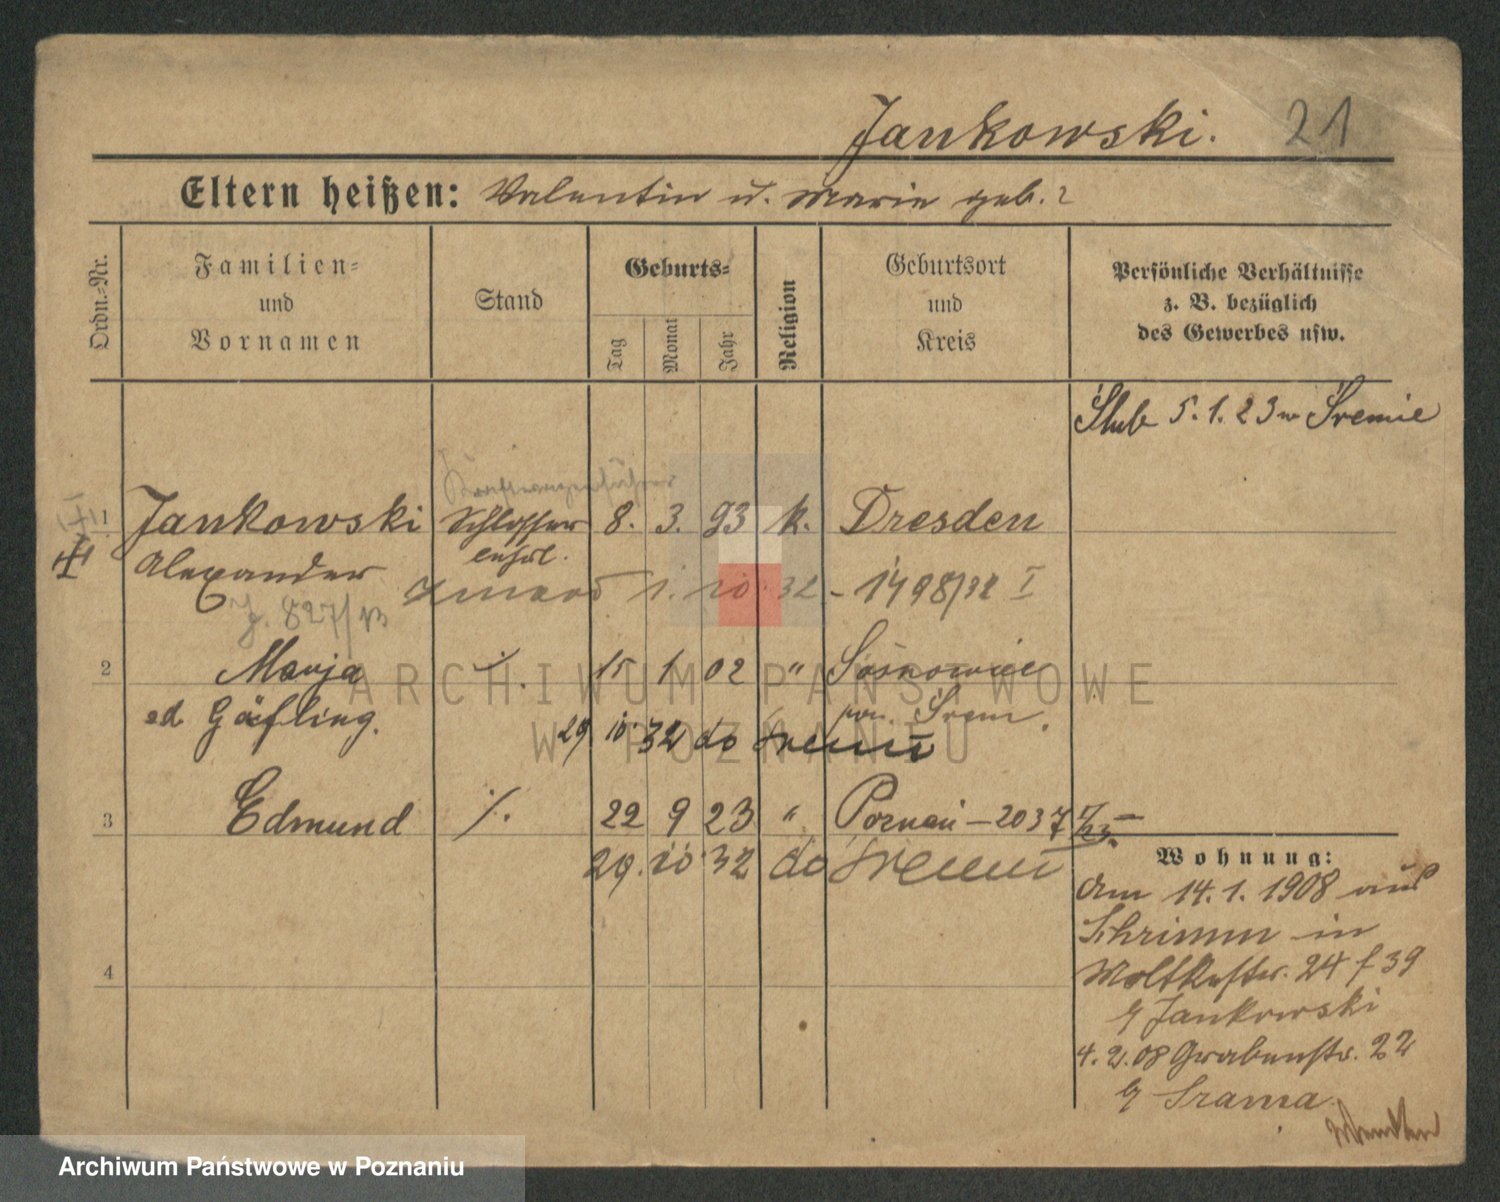 Jankowski. 21
Eltern heißen: Valentin u. Marie geb. ?
Ordn.-Nr.
Familien-
und
Vornamen
Stand
Geburts-
Tag
Monat
Jahr
Religion
Geburtsort
und
Kreis
Persönliche Verhältnisse
z. B. bezüglich
des Gewerbes usw.
Ślub 5.1.23 w Śremie
Kraftwagenführer
1 Jankowski Schlosser 8. 3. 93 k. Dresden
lehrl.
Alexander
1. 10. 32 - 1498/32 I
J. 827/13
2 Marja ·/. 15 1 02 " Sosnowiec
pow. Śrem.
29 10. 32 do Śremu
3 Edmund ·/. 22 9 23 " Poznań - 2037
29. 10. 32 do Śremu
Wohnung:
Am 14.1.1908 aus
Schrimm in
Moltkestr. 24 f 39
b/ Jankowski
4.2.08 Grabenstr. 22
b/ Srama
Wenden
4
ARCHIWUM PAŃSTWOWE
W POZNANIU
Archiwum Państwowe w Poznaniu